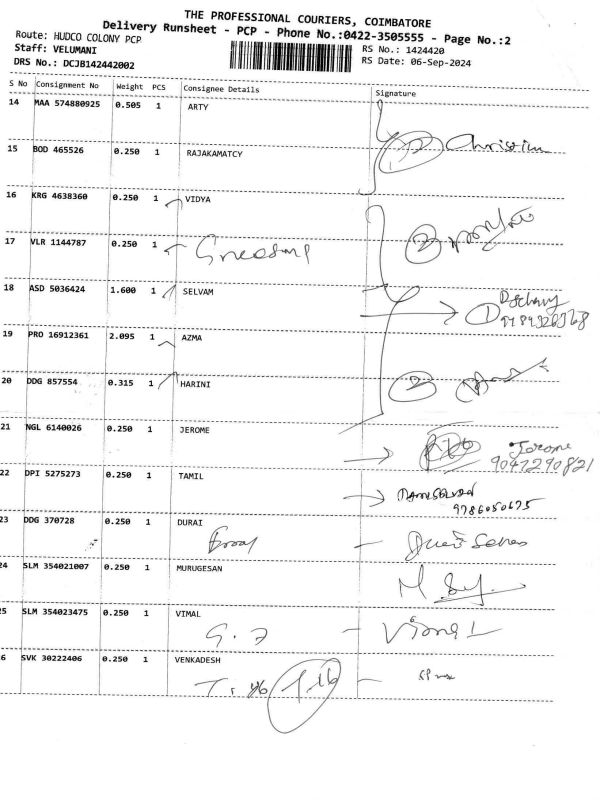 THE PROFESSIONAL COURIERS, COIMBATORE
Delivery Runsheet - PCP - Phone No.:0422-3505555 - Page No.:2
Route: HUDCO COLONY PCP
RS No.: 1424420
Staff: VELUMANI
RS Date: 06-Sep-2024
DRS No.: DCJB142442002
S No Consignment No Weight PCS Consignee Details Signature
14 MAA 574880925 0.505 1 ARTY
Christin
15 BOD 465526 0.250 1 RAJAKAMATCY
16 KRG 4638360 0.250 1 VIDYA
2
17 VLR 1144787 0.250 1
18 ASD 5036424 1.600 1 SELVAM
1
9789320368
19 PRO 16912361 2.095 1 AZMA
20 DDG 857554 0.315 1 HARINI
2
21 NGL 6140026 0.250 1 JEROME
Jerome
9047290821
22 DPI 5275273 0.250 1 TAMIL
9786050675
23 DDG 370728 0.250 1 DURAI
24 SLM 354021007 0.250 1 MURUGESAN
25 SLM 354023475 0.250 1 VIMAL
G. 7 - Vimal
26 SVK 30222406 0.250 1 VENKADESH